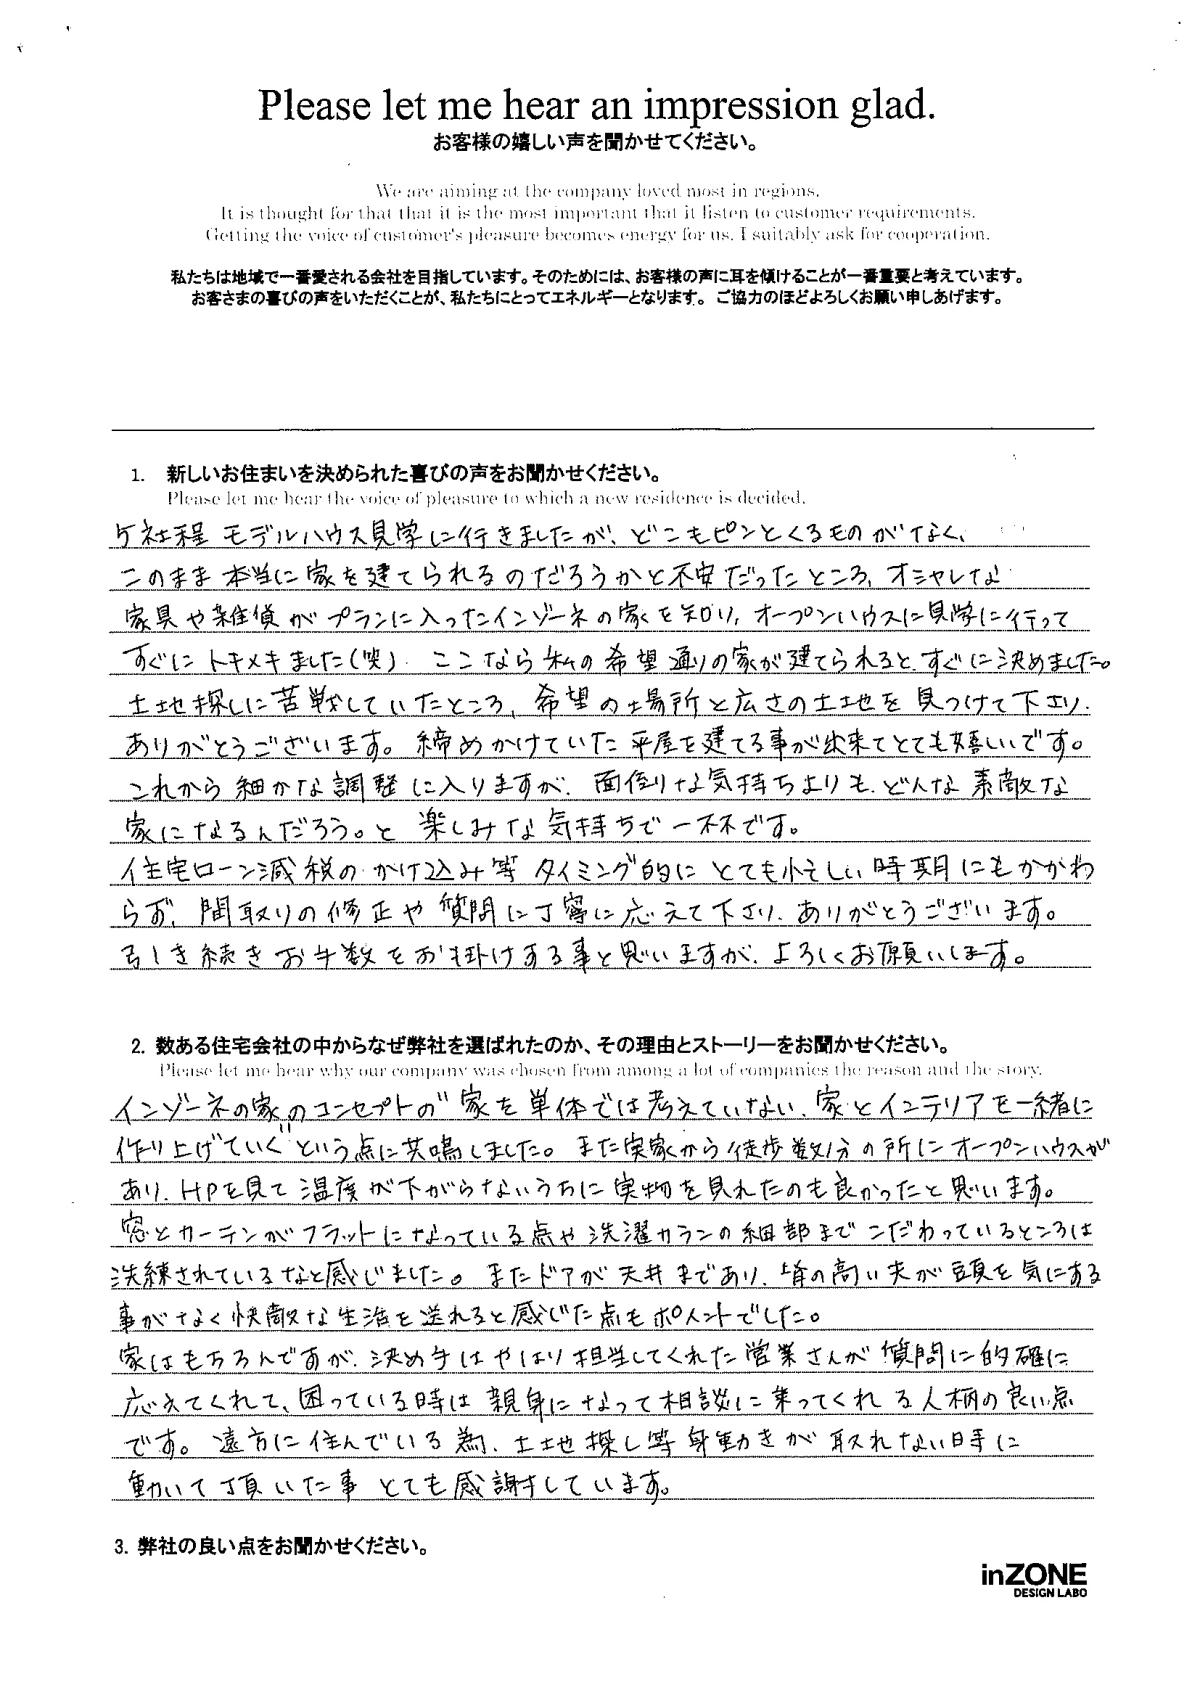 Please let me hear an impression glad.
お客様の嬉しい声を聞かせてください。
We are aiming at the company loved most in regions.
It is thought for that that it is the most important that it listen to customer requirements.
Getting the voice of customer's pleasure becomes energy for us. I suitably ask for cooperation.
私たちは地域で一番愛される会社を目指しています。そのためには、お客様の声に耳を傾けることが一番重要と考えています。
お客さまの喜びの声をいただくことが、私たちにとってエネルギーとなります。 ご協力のほどよろしくお願い申しあげます。
1. 新しいお住まいを決められた喜びの声をお聞かせください。
Please let me hear the voice of pleasure to which a new residence is decided.
ケ社程 モデルハウス見学に行きましたが、どこもピンとくるものがなく、
このまま 本当に家を建てられるのだろうかと不安だったところ、オシャレな
家具や雑貨がプランに入ったインゾーネの家を知り、オープンハウスに見学に行って
すぐにトキメキました(笑)。ここなら私の希望通りの家が建てられると、すぐに決めました。
土地探しに苦戦していたところ、希望の場所と広さの土地を見つけて下さり、
ありがとうございます。諦めかけていた平屋を建てる事が出来てとても嬉しいです。
これから細かな調整に入りますが、面倒な気持ちよりも、どんな素敵な
家になるんだろう。と 楽しみな気持ちで一杯です。
住宅ローン減税のかけ込み等 タイミング的にとても忙しい時期にもかかわ
らず、間取りの修正や質問に丁寧に応えて下さり、ありがとうございます。
引き続きお手数をお掛けする事と思いますが、よろしくお願いします。
2. 数ある住宅会社の中からなぜ弊社を選ばれたのか、その理由とストーリーをお聞かせください。
Please let me hear why our company was chosen from among a lot of companies the reason and the story.
インゾーネの家のコンセプトの"家を単体では考えていない、家とインテリアを一緒に
作り上げていく"という点に共鳴しました。また実家から徒歩数分の所にオープンハウスが
あり、HPを見て温度が下がらないうちに実物を見れたのも良かったと思います。
窓とカーテンがフラットになっている点や洗濯カランの細部までこだわっているところは
洗練されているなと感じました。またドアが天井まであり、背の高い夫が頭を気にする
事がなく快適な生活を送れると感じた点もポイントでした。
家はもちろんですが、決め手はやはり担当してくれた営業さんが質問に的確に
応えてくれて、困っている時は親身になって相談に乗ってくれる人柄の良い点
です。遠方に住んでいる為、土地探し等身動きが取れない時に
動いて頂いた事とても感謝しています。
3. 弊社の良い点をお聞かせください。
inZONE
DESIGN LABO